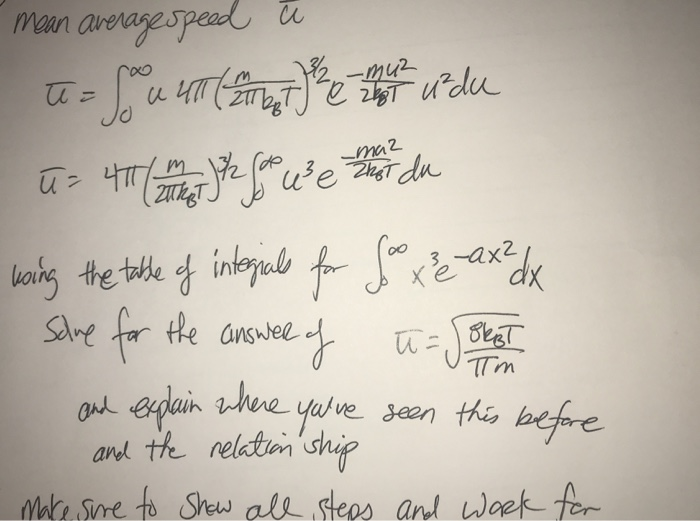 mean average speed ū
ū = ∫₀^∞ u 4π (m/2πk_BT)^3/2 e^(-mu²/2k_BT) u²du
ū = 4π (m/2πk_BT)^3/2 ∫₀^∞ u³e^(-mu²/2k_BT) du
using the table of integrals for ∫₀^∞ x³e^(-ax²) dx
Solve for the answer of ū = √(8k_BT/πm)
and explain where you've seen this before
and the relationship
Make sure to show all steps and work for